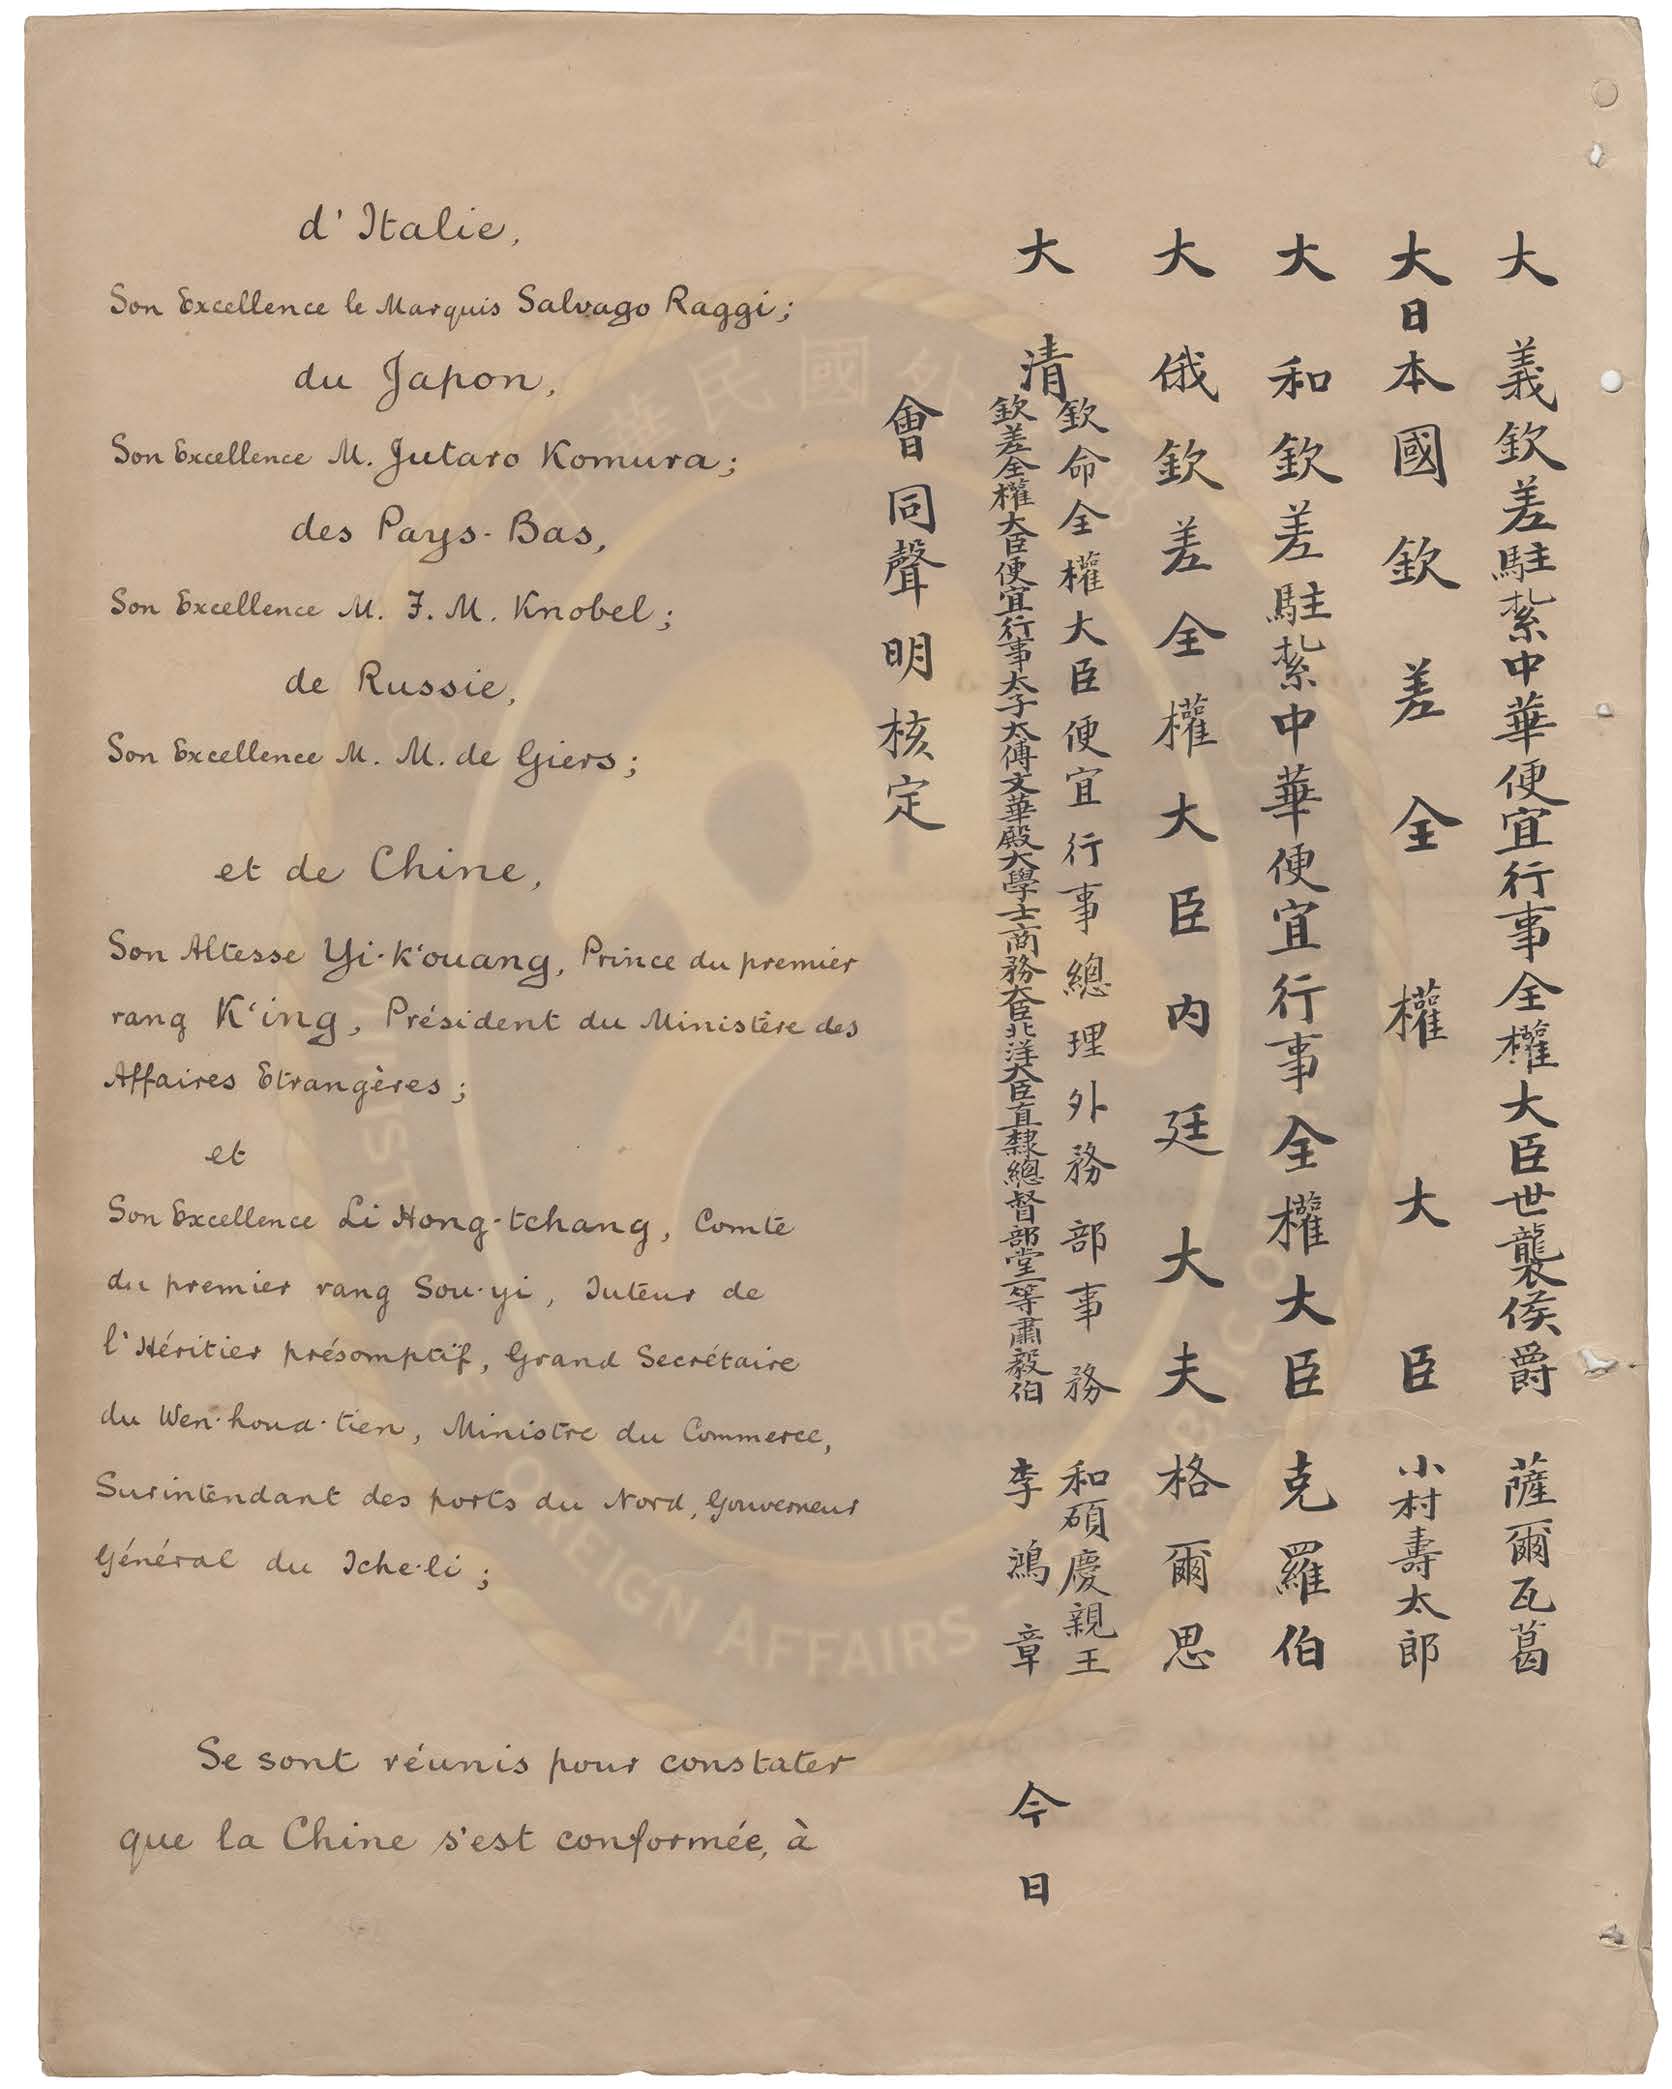 d'Italie,
Son Excellence le Marquis Salvago Raggi;
du Japon,
Son Excellence M. Jutaro Komura;
des Pays-Bas,
Son Excellence M. F. M. Knobel;
de Russie,
Son Excellence M. M. de Giers;
et de Chine,
Son Altesse Yi-K'ouang, Prince du premier
rang K'ing, Président du Ministère des
Affaires Etrangères;
et
Son Excellence Li Hong-tchang, Comte
du premier rang Sou-yi, Tuteur de
l'Héritier présomptif, Grand Secrétaire
du Wen-houa-tien, Ministre du Commerce,
Surintendant des ports du Nord, Gouverneur
Général du Tche-li;
Se sont réunis pour constater
que la Chine s'est conformée, à
大義欽差駐紮中華便宜行事全權大臣世襲侯爵薩爾瓦葛
大日本國欽差全權大臣小村壽太郎
大和欽差駐紮中華便宜行事全權大臣克羅伯
大俄欽差全權大臣內廷大夫格爾思
大清
欽命全權大臣便宜行事總理外務部事務和碩慶親王
欽差全權大臣便宜行事太子太傅文華殿大學士商務大臣北洋大臣直隸總督部堂一等肅毅伯李鴻章
今日
會同聲明核定
中華民國外
MINIST OF FOREIGN AFFAIRS